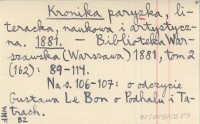 Kronika paryzka, li-
teracka, naukowa i artystycz-
na. 1881. - Biblioteka War-
szawska (Warszawa) 1881, tom 2
(162): 89-114.
Na s. 106-107: o odczycie
Gustawa Le Bon o Podhalu i Ta-
trach.
BZ